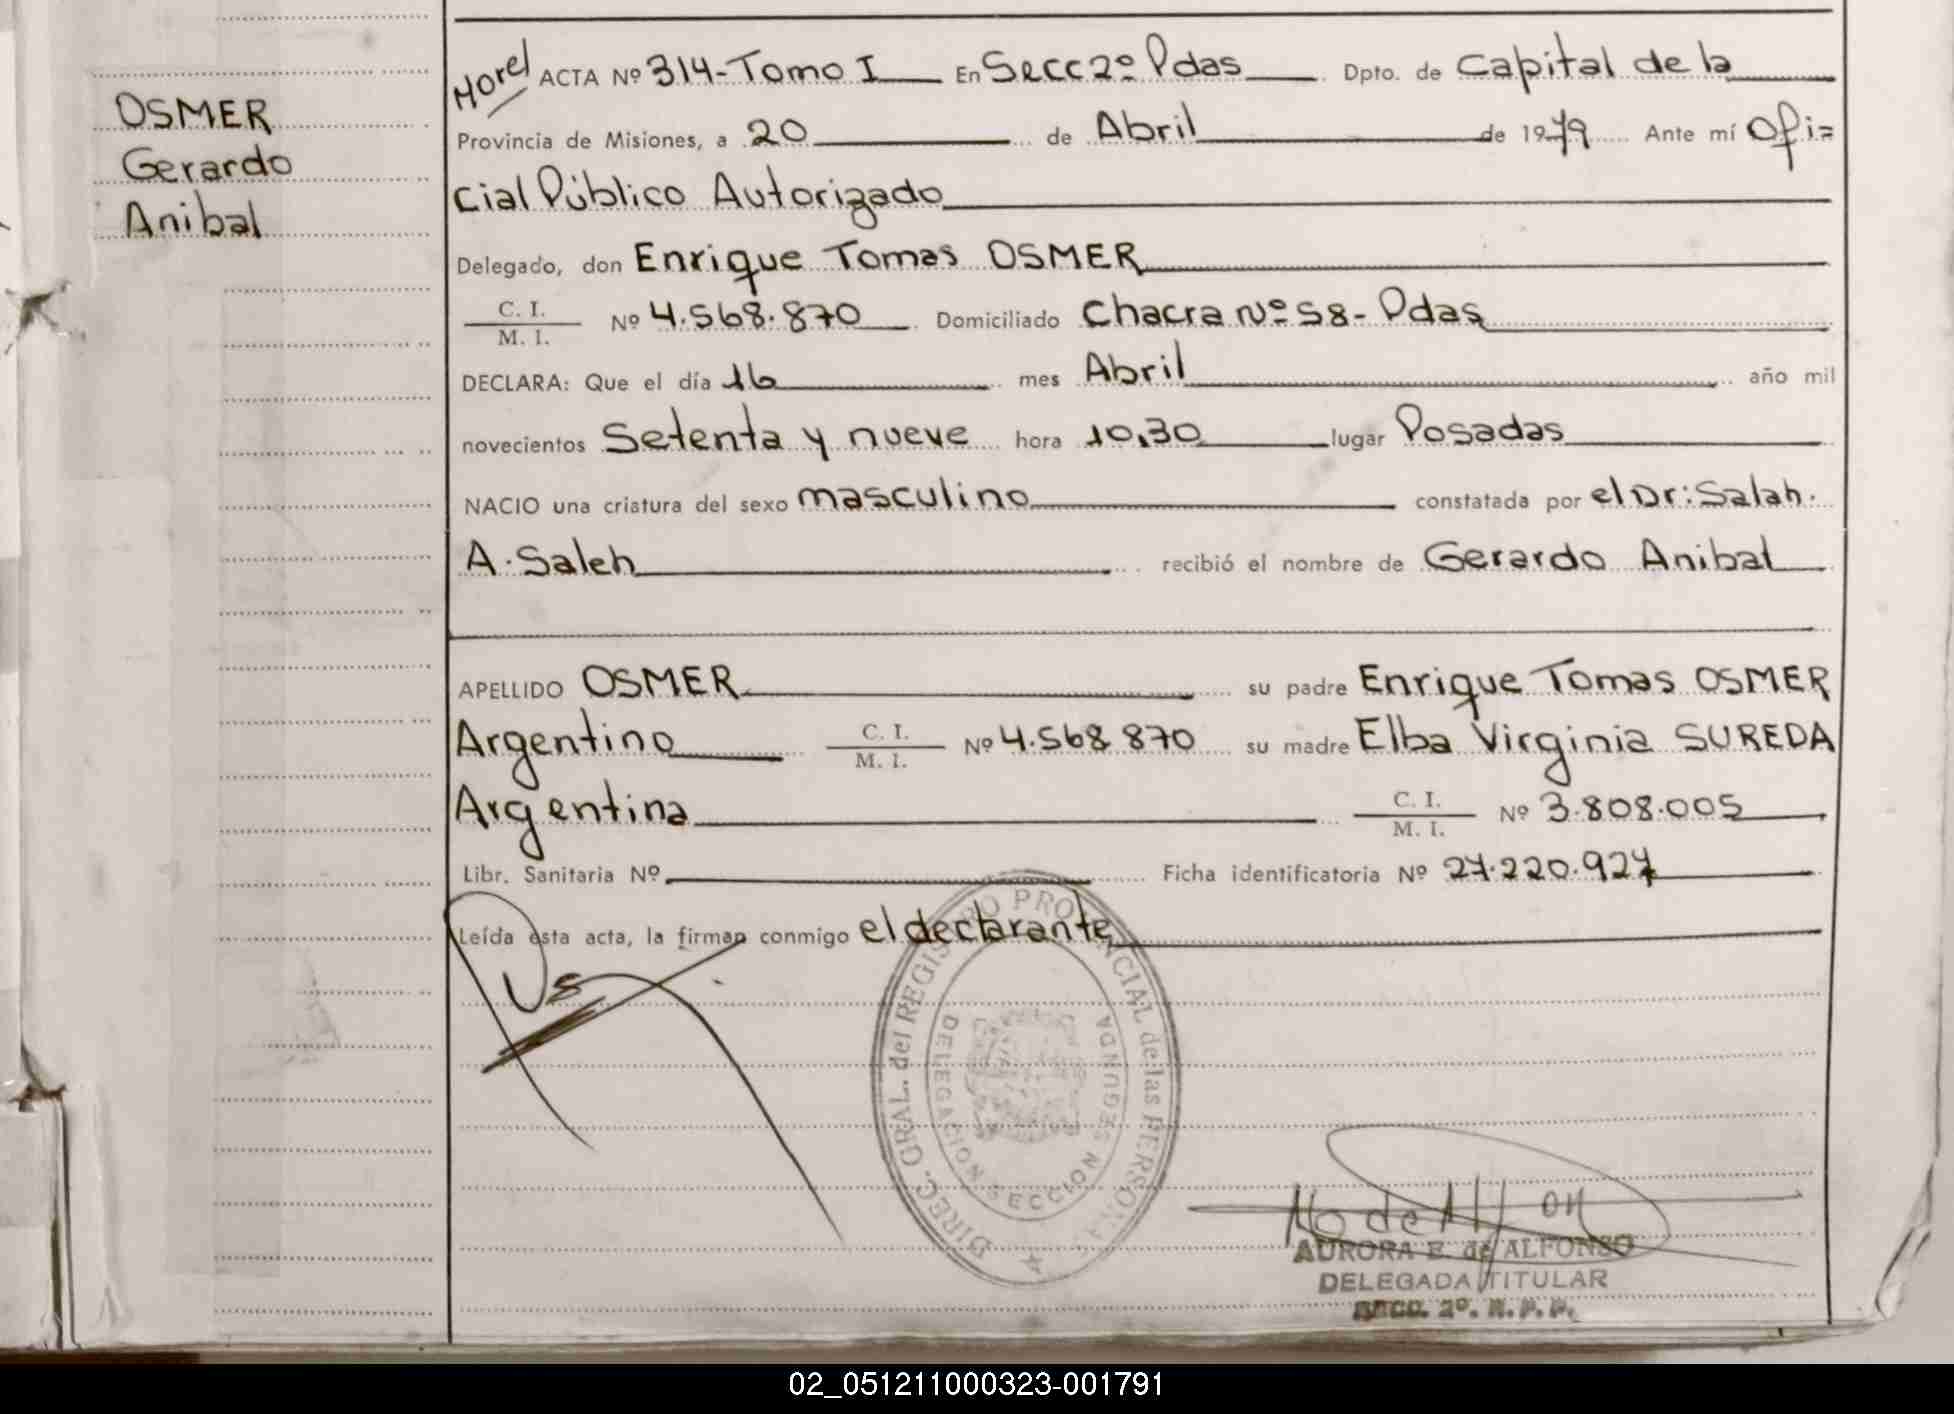 OSMER
Gerardo
Anibal
Morel ACTA Nº 314-Tomo I En Secc 2º Pdas Dpto. de Capital de la
Provincia de Misiones, a 20 de Abril de 1979 Ante mí Ofi=
cial Público Autorizado
Delegado, don Enrique Tomas OSMER
C. I.
M. I.
Nº 4.568.870 Domiciliado Chacra Nº 58-Pdas
DECLARA: Que el día 16 mes Abril año mil
novecientos Setenta y nueve hora 10,30 lugar Posadas
NACIO una criatura del sexo masculino constatada por el Dr: Salah.
A. Saleh recibió el nombre de Gerardo Anibal
APELLIDO OSMER su padre Enrique Tomas OSMER
Argentino C. I. M. I. Nº 4.568 870 su madre Elba Virginia SUREDA
Argentina C. I. M. I. Nº 3.808.005
Libr. Sanitaria Nº Ficha identificatoria Nº 27.220.927
Leída esta acta, la firman conmigo el declarante
DIREC. GRAL. del REGISTRO PROVINCIAL de las PERSONAS
DELEGACION SECCION SEGUNDA
AURORA E. de ALFONSO
DELEGADA TITULAR
SECC. 2º. R. P. P.
02_051211000323-001791